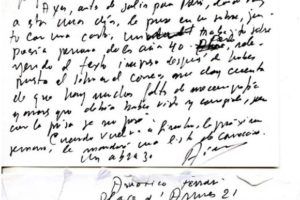 Ayer, antes de salir para París,
a sor una disk, le puse en un sobre, jun-
to con una carta, un trabajo sobre
poesía peruana de los años 40. Pero, rele-
yendo el texto impreso después de haber
puesto el sobre al correo, me doy cuenta
de que hay muchas faltas de mecanografía
y otras que debía haber visto y corregido, pero
con la prisa se me pasó.
Cuando vuelva a Ginebra, la próxima
semana, le mandaré una lista de correcciones.
Un abrazo
Américo Ferrari
Place d'Armes 21